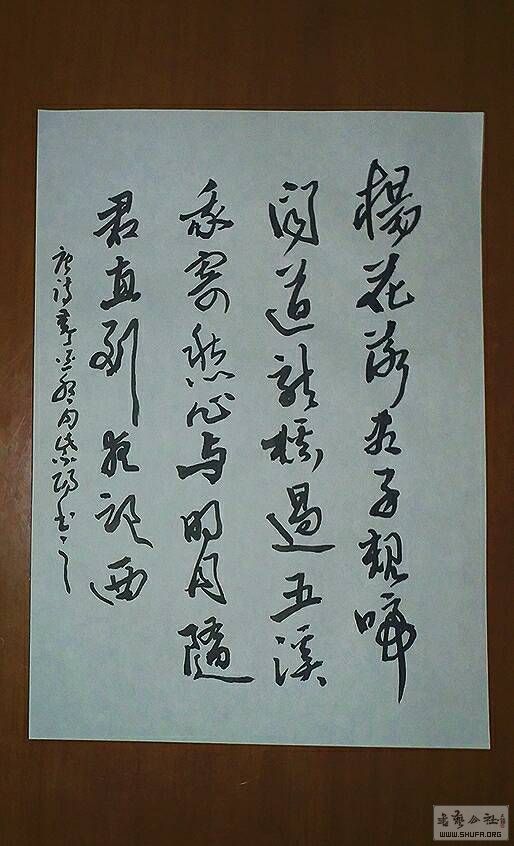 楊花落尽子規啼
闻道龍標過五溪
我寄愁心与明月隨
君直到夜郎西
唐詩
書之
WWW.SHUFA.ORG